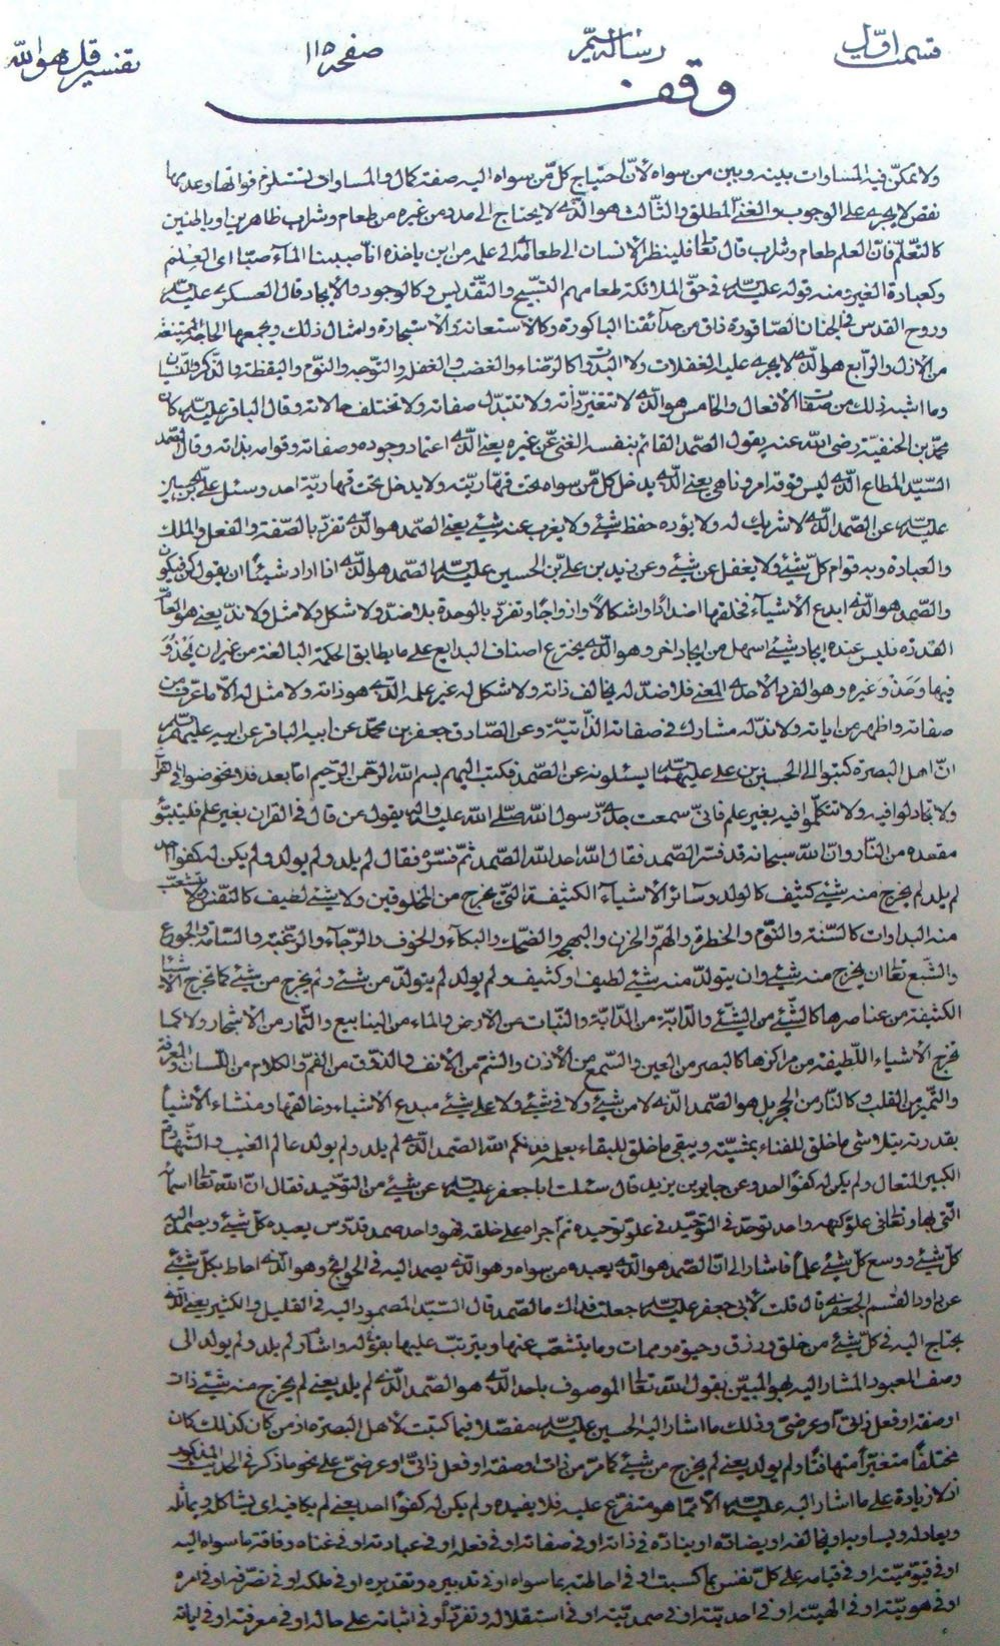 قسمت اوّل رسالة صفحه ۱۱۵ تفسير قل هو الله
وقف
ولا يمكن فيه المساوات بينه وبين من سواه لأنّ احتياج كل من سواه اليه صفة كمال والمساوات تستلزم فواتها وعدمها
نقص لا يجرى على الوجوب والغنى المطلق والثالث هو الّذى لا يحتاج الى مدد من غيره من طعام وشراب ظاهرين او باطنين
كالتعلّم فانّ العلم طعام وشراب قال تعالى فلينظر الانسان الى طعامه الى علمه من اين ياخذه انّا صببنا الماء صبّا اى العلم
وكعبادة الغير ومنه قوله عليه السلام فى حقّ الملائكة طعامهم التسبيح والتقديس وكالوجود والايجاد قال العسكرى عليه السلام
وروح القدس فى الجنان الصاقورة ذاق من حدائقنا الباكورة وكالاستعانة والاستجارة وامثال ذلك ويجمعها الحاجة الممتنعة
من الازل والرابع هو الّذى لا يجرى عليه الغفلات ولا البدوات كالرضاء والغضب والغفلة والتوجه والنوم واليقظة والذكر والنسيان
وما اشبه ذلك من صفات الافعال والخامس هو الّذى لا تتغير ذاته ولا تتبدل صفاته ولا تختلف حالاته وقال الباقر عليه السلام كان
محمّد بن الحنفيّة رضى الله عنه يقول الصمد القائم بنفسه الغنى عن غيره يعنى الّذى اعتماد وجوده وصفاته وقوامه بذاته وقال الصمد
السيّد المطاع الّذى ليس فوقه امر وناهى يعنى الّذى يدخل كل من سواه تحت قهّاريته ولا يدخل تحت قهارية احد وسئل على بن الحسين
عليه السلام عن الصمد الّذى لا شريك له ولا يؤده حفظ شئ ولا يعزب عنه شئ يعنى الصمد هو الّذى تفرّد بالصفة والفعل والملك
والعبادة وبه قوام كلّ شئ ولا يغفل عن شئ وعن زيد بن على بن الحسين عليه السلام الصمد هو الّذى اذا اراد شيئا ان يقول كن فيكون
والصمد هو الّذى ابدع الاشياء فخلقها اضدادا واشكالا وازواجا وتفرّد بالوحدة بلا ضد ولا شكل ولا مثل ولا ندّ يعنى هو العام
القدرة فليس عنده ايجاد شئ اسهل من ايجاد اخر وهو الّذى يخترع اصناف البدايع على ما يطابق الحكمة البالغة من غير ان يحذو
فيها وحذو غيره وهو الفرد الاحدى المعنى فلا ضدّ له يخالف ذاته ولا شكل له غير علمه الّذى هو ذاته ولا مثل له الّا ما عرّف من
صفاته واظهر من اياته ولا ندّ له مشارك فى صفاته الذّاتيّة وعن الصادق جعفر بن محمّد عن ابيه الباقر عن ابيه عليهم السلام
انّ اهل البصرة كتبوا الى الحسين بن على عليهما السلام يسئلونه عن الصمد فكتب اليهم بسم الله الرحمن الرحيم اما بعد فلا تخوضوا فى القرآن
ولا تجادلوا فيه ولا تتكلّموا فيه بغير علم فانّى سمعت جدّى رسول الله صلى الله عليه وآله يقول من قال فى القرآن بغير علم فليتبوّأ
مقعده من النّار وانّ الله سبحانه قد فسّر الصمد فقال الله احد الله الصمد ثمّ فسّره فقال لم يلد ولم يولد ولم يكن له كفوا احد
لم يلد لم يخرج منه شئ كثيف كالولد وسائر الاشياء الكثيفة التى تخرج من المخلوقين ولا شئ لطيف كالنفس ولا يتشعّب
منه البداوات كالسّنة والنّوم والخطرة والهمّ والحزن والبهجة والضحك والبكاء والخوف والرجاء والرّغبة والسّامة والجوع
والشّبع تعالى ان يخرج منه شئ وان يتولّد منه شئ لطيف او كثيف ولم يولد لم يتولّد من شئ ولم يخرج من شئ كما تخرج الاشياء
الكثيفة من عناصرها كالشّئ من الشّئ والدّابّة من الدّابّة والنّبات من الارض والماء من الينابيع والثّمار من الاشجار ولا كما
تخرج الاشياء اللّطيفة من مراكزها كالبصر من العين والسّمع من الاذن والشّم من الانف والذّوق من الفم والكلام من اللّسان والمعرفة
والتّميز من القلب وكالنّار من الحجر بل هو الصمد الّذى لا من شئ ولا فى شئ ولا على شئ مبدع الاشياء وخالقها ومنشاء الاشياء
بقدرته يتلاشى ما خلق للفناء بمشيّته ويبقى ما خلق للبقاء بعلمه فذلكم الله الصمد الّذى لم يلد ولم يولد عالم الغيب والشّهادة
الكبير المتعال ولم يكن له كفوا احد وعن جابر بن يزيد قال سئلت ابا جعفر عليه السلام عن شئ من التّوحيد فقال انّ الله تعالى اسمائه
الّتى يدعا بها وتعالى فى علوّ كنهه واحد توحّد فى التوحيد فى علوّ توحيده ثم اجراه على خلقه فهو واحد صمد قدّوس يعبده كلّ شئ ويصمد اليه
كلّ شئ ووسع كلّ شئ علما فاشار الى انّ الصمد هو الّذى يعبده من سواه وهو الّذى يصمد اليه فى الحوائج وهو الّذى احاط بكلّ شئ
عن داود القسم الجعفرى قال قلت لابى جعفر عليه السلام جعلت فداك ما الصمد قال السّيّد المصمود اليه فى القليل والكثير يعنى الّذى
يحتاج اليه فى كلّ شئ من خلق ورزق وحيوة وممات وما يتشعّب عنها ويترتّب عليها بقوله واشار لم يلد ولم يولد الى
وصف المعبود المشار اليه بهو المبيّن بقول الله تعالى الموصوف باحد الّذى هو الصمد الّذى لم يلد يعنى لم يخرج منه شئ ذات
او صفة او فعل ذاتى او عرضى وذلك ما اشار اليه الحسين عليه السلام مفصّلا فيما كتبت لاهل البصرة اذ من كان كذلك كان
مختلفا متغيّرا متهافتا ولم يولد يعنى لم يخرج من شئ كما مرّ من ذات او صفة او فعل ذاتى او عرضى على نحو ما ذكر فى الحديث المذكور
اذ لا زيادة على ما اشار اليه عليه السلام الّا ممّا هو متفرّع عليه فلا يفيده ولم يكن له كفوا احد يعنى لم يكافيه اى يشاكله ويماثله
ويعادله ويساويه او يخالفه او يضادّه او ينادّه فى ذاته او فى صفاته او فى فعله او فى عبادته او فى غناه وفاقة ما سواه اليه
او فى قيّوميّته او فى قيامه على كلّ نفس بما كسبت او فى احاطته بما سواه او فى تدبيره وتقديره او فى ملكه او فى تصرّفه او فى امره
او فى هويّته او فى الهيّته او فى احديّته او فى صمديّته او فى استقلاله وتفرّده او فى اثباته على حاله او فى معرفته او فى اياته